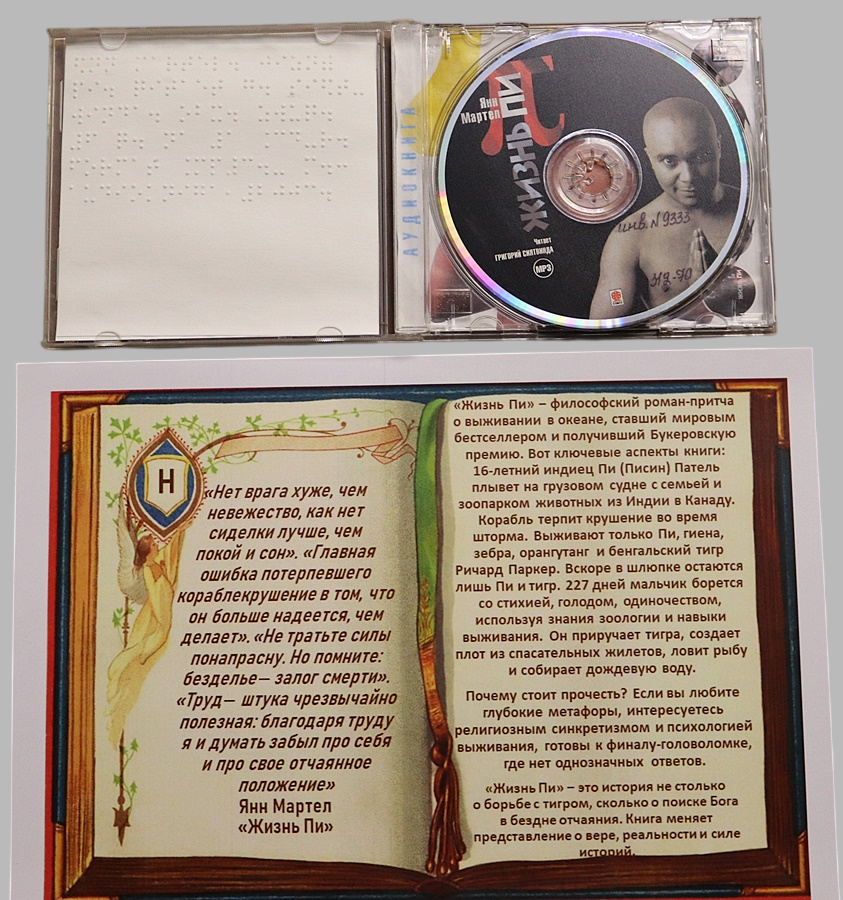 АУДИОКНИГА
Янн
Мартел
ЖИЗНЬ ПИ
Читает
ГРИГОРИЙ СИЯТВИНДА
MP3
инв. N 9333
Н
«Нет врага хуже, чем
невежество, как нет
сиделки лучше, чем
покой и сон». «Главная
ошибка потерпевшего
кораблекрушение в том, что
он больше надеется, чем
делает». «Не тратьте силы
понапрасну. Но помните:
безделье— залог смерти».
«Труд— штука чрезвычайно
полезная: благодаря труду
я и думать забыл про себя
и про свое отчаянное
положение»
Янн Мартел
«Жизнь Пи»
«Жизнь Пи» – философский роман-притча
о выживании в океане, ставший мировым
бестселлером и получивший Букеровскую
премию. Вот ключевые аспекты книги:
16-летний индиец Пи (Писин) Патель
плывет на грузовом судне с семьей и
зоопарком животных из Индии в Канаду.
Корабль терпит крушение во время
шторма. Выживают только Пи, гиена,
зебра, орангутанг и бенгальский тигр
Ричард Паркер. Вскоре в шлюпке остаются
лишь Пи и тигр. 227 дней мальчик борется
со стихией, голодом, одиночеством,
используя знания зоологии и навыки
выживания. Он приручает тигра, создает
плот из спасательных жилетов, ловит рыбу
и собирает дождевую воду.
Почему стоит прочесть? Если вы любите
глубокие метафоры, интересуетесь
религиозным синкретизмом и психологией
выживания, готовы к финалу-головоломке,
где нет однозначных ответов.
«Жизнь Пи» – это история не столько
о борьбе с тигром, сколько о поиске Бога
в бездне отчаяния. Книга меняет
представление о вере, реальности и силе
историй.